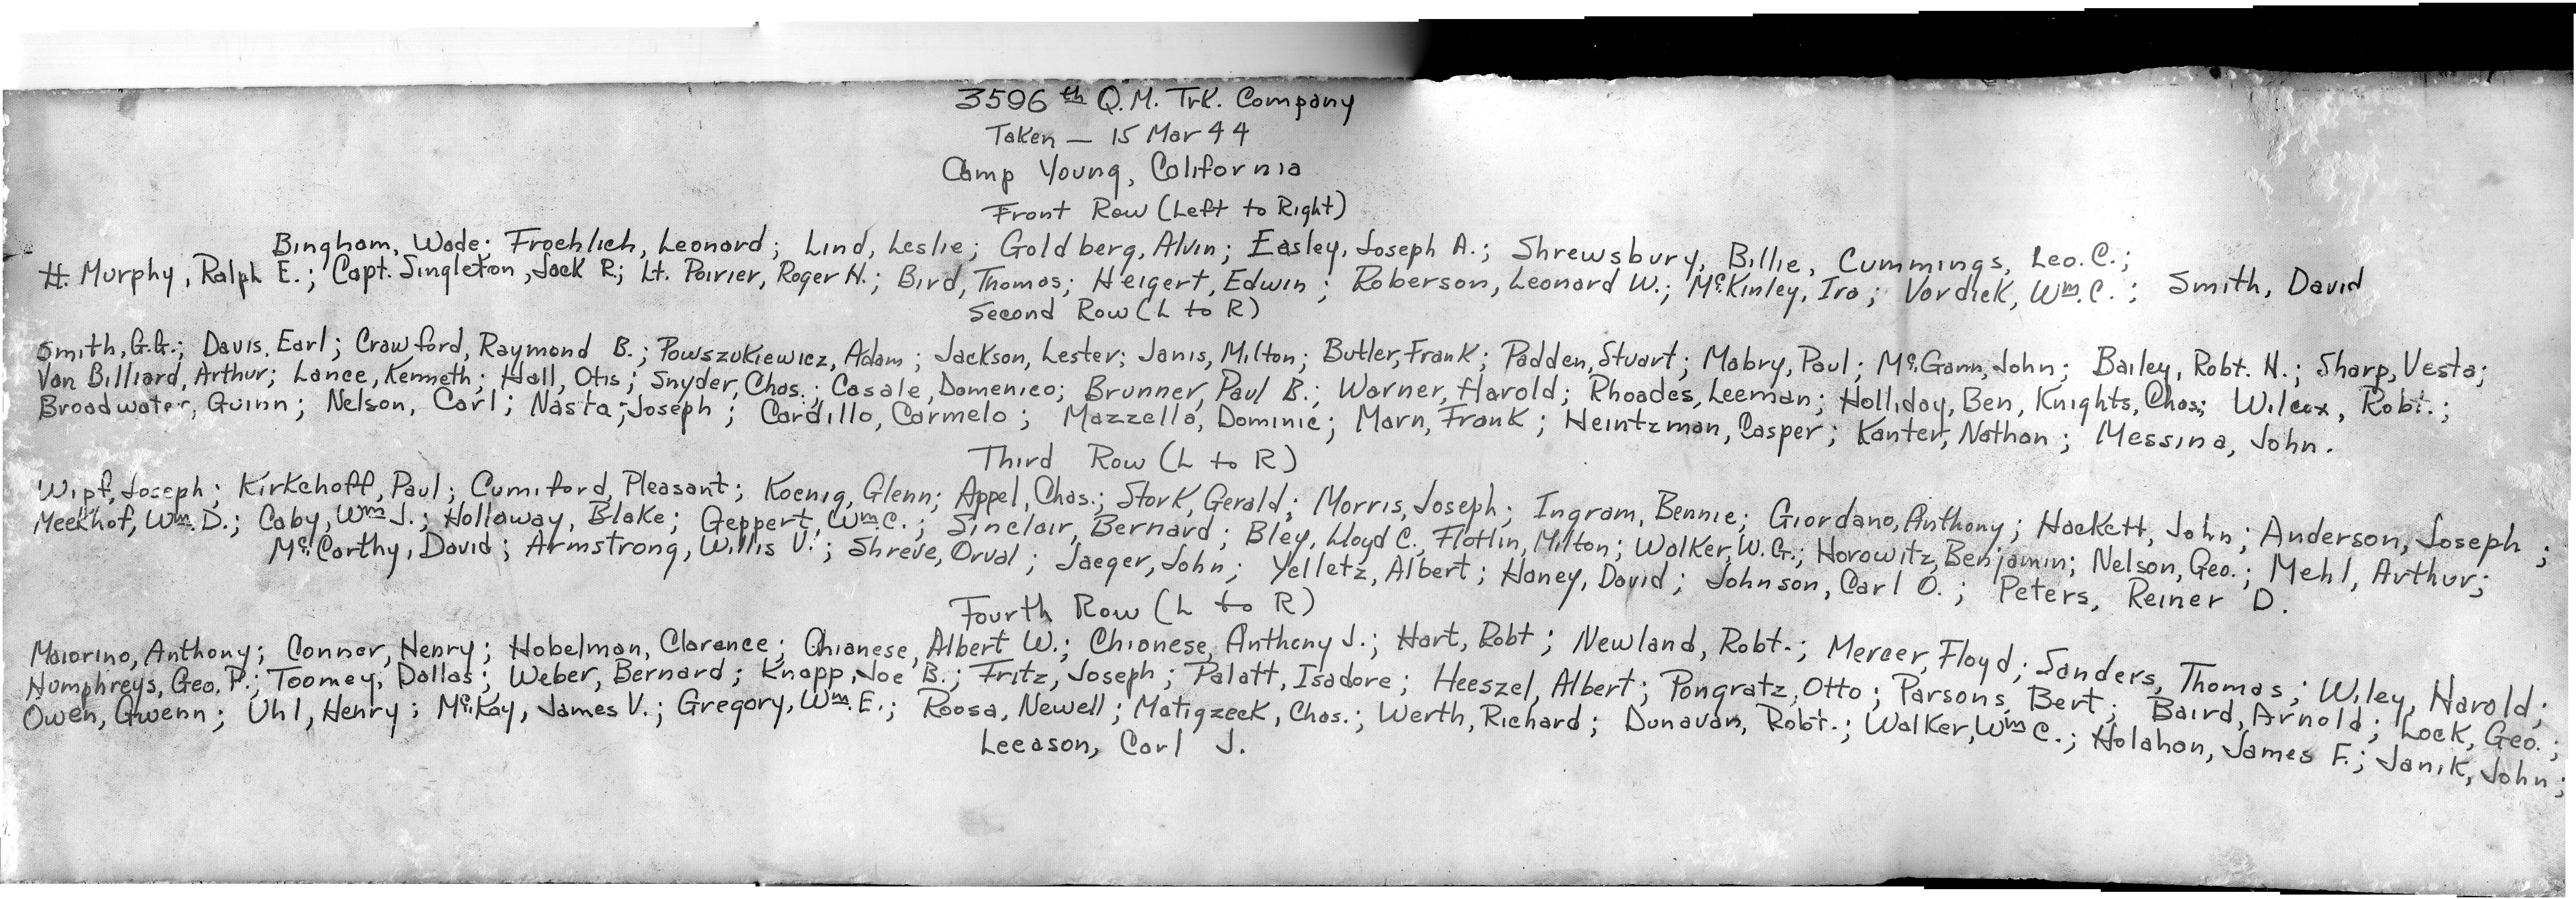 3596th Q.M. Trk. Company
Taken — 15 Mar 44
Camp Young, California
Front Row (Left to Right)
Bingham, Wade; Froehlich, Leonard; Lind, Leslie; Goldberg, Alvin; Easley, Joseph A.; Shrewsbury, Billie, Cummings, Leo. C.;
Lt. Murphy, Ralph E.; Capt. Singleton, Jack R.; Lt. Poirier, Roger H.; Bird, Thomas; Heigert, Edwin; Roberson, Leonard W.; McKinley, Ira; Vordick, Wm. C.; Smith, David
Second Row (L to R)
Smith, G.G.; Davis, Earl; Crawford, Raymond B.; Powszukiewicz, Adam; Jackson, Lester; Janis, Milton; Butler, Frank; Padden, Stuart; Mabry, Paul; McGann, John; Bailey, Robt. H.; Sharp, Vesta;
Van Billiard, Arthur; Lance, Kenneth; Hall, Otis; Snyder, Chas.; Casale, Domenico; Brunner, Paul B.; Warner, Harold; Rhoades, Leeman; Holliday, Ben, Knights, Chas; Wilcox, Robt.;
Broadwater, Guinn; Nelson, Carl; Nasta, Joseph; Cardillo, Carmelo; Mazzella, Dominic; Marn, Frank; Heintzman, Casper; Kanter, Nathan; Messina, John.
Third Row (L to R)
Wipf, Joseph; Kirkchoff, Paul; Cumiford, Pleasant; Koenig, Glenn; Appel, Chas.; Stork, Gerald; Morris, Joseph; Ingram, Bennie; Giordano, Anthony; Hackett, John; Anderson, Joseph;
Meekhof, Wm. D.; Caby, Wm J.; Holloway, Blake; Geppert, Wm. C.; Sinclair, Bernard; Bley, Lloyd C., Flotlin, Milton; Walker, W.G.; Horowitz, Benjamin; Nelson, Geo.; Mehl, Arthur;
McCarthy, David; Armstrong, Willis V.; Shreve, Orval; Jaeger, John; Yelletz, Albert; Haney, David; Johnson, Carl O.; Peters, Reiner D.
Fourth Row (L to R)
Maiorino, Anthony; Conner, Henry; Hobelman, Clarence; Chianese, Albert W.; Chianese, Anthony J.; Hart, Robt; Newland, Robt.; Mercer, Floyd; Sanders, Thomas; Wiley, Harold;
Humphreys, Geo. P.; Toomey, Dallas; Weber, Bernard; Knapp, Joe B.; Fritz, Joseph; Palatt, Isadore; Heeszel, Albert; Pongratz, Otto; Parsons, Bert; Baird, Arnold; Lock, Geo.;
Owen, Gwenn; Uhl, Henry; McKay, James V.; Gregory, Wm. E.; Roosa, Newell; Matigzeck, Chas.; Werth, Richard; Dunavan, Robt.; Walker, Wm C.; Holahan, James F.; Janik, John;
Leeason, Carl J.